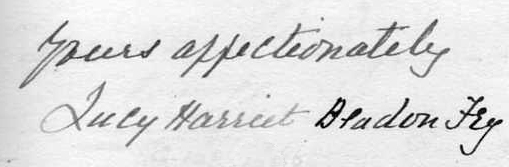 Yours affectionately
Lucy Harriet Beadon Fry